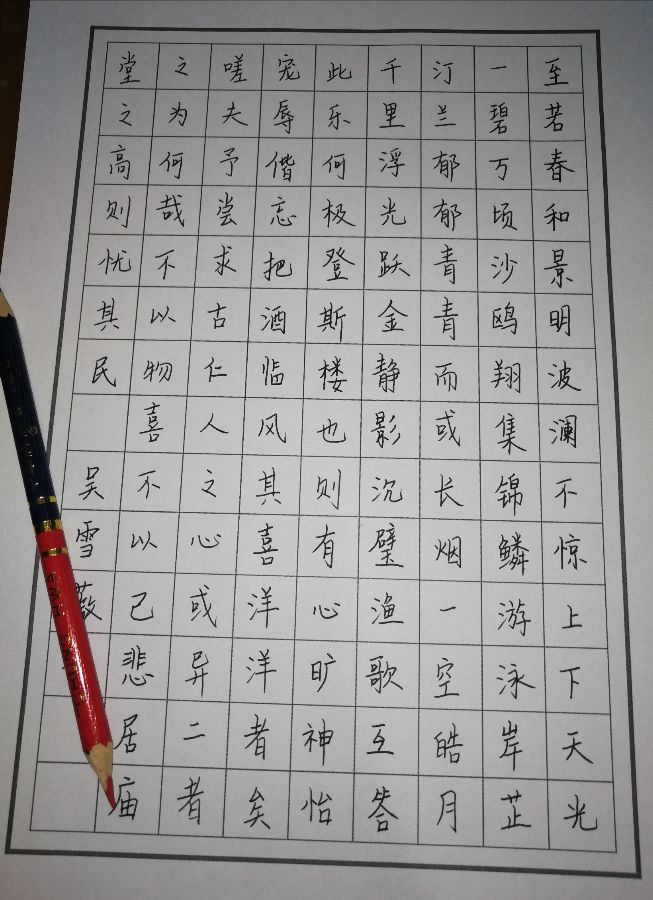 至若春和景明波澜不惊上下天光
一碧万顷沙鸥翔集锦鳞游泳岸芷
汀兰郁郁青青而或长烟一空皓月
千里浮光跃金静影沉璧渔歌互答
此乐何极登斯楼也则有心旷神怡
宠辱偕忘把酒临风其喜洋洋者矣
嗟夫予尝求古仁人之心或异二者
之为何哉不以物喜不以己悲居庙
堂之高则忧其民
吴雪